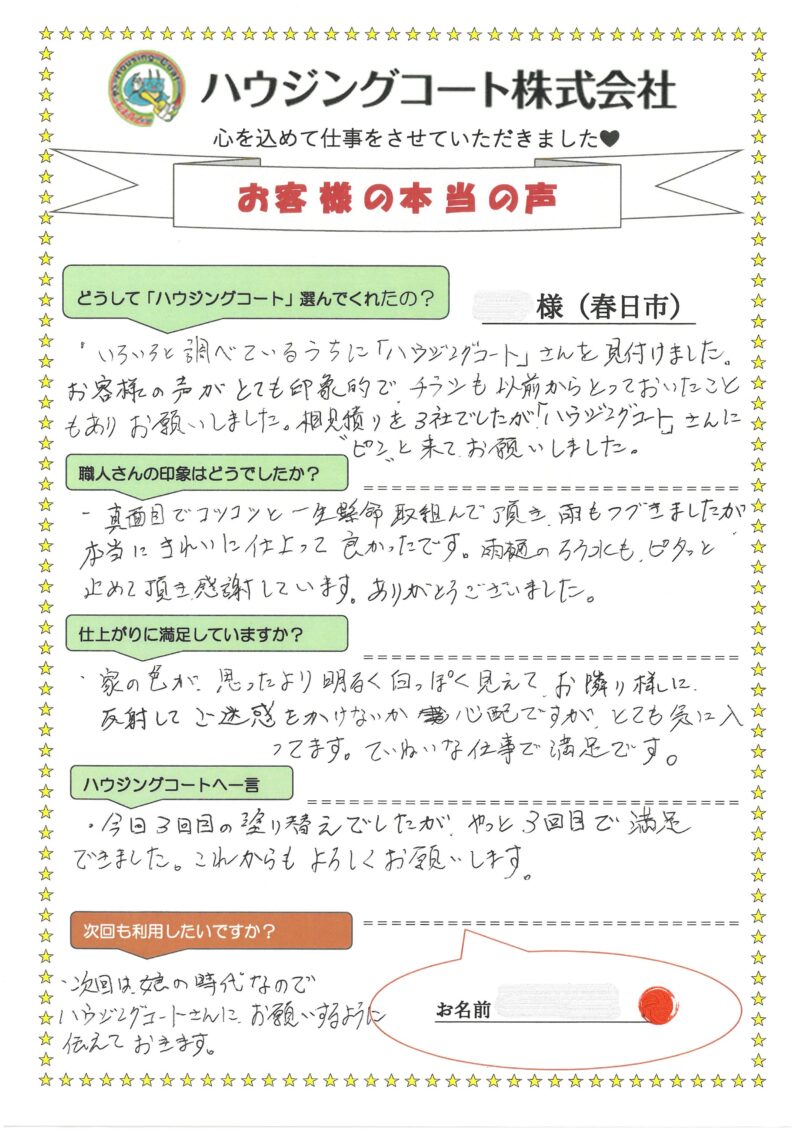 Housing Coat
ハウジングコート株式会社
心を込めて仕事をさせていただきました♥
お客様の本当の声
どうして「ハウジングコート」選んでくれたの？
様（春日市）
・いろいろと調べているうちに「ハウジングコート」さんを見付けました。
お客様の声がとても印象的で、チラシも以前からとっておいたこと
もありお願いしました。相見積りを3社でしたが「ハウジングコート」さんに
"ピン"と来て、お願いしました。
職人さんの印象はどうでしたか？
・真面目でコツコツと一生懸命取組んで頂き、雨もつづきましたが
本当にきれいに仕上って良かったです。雨樋のろう水も、ピタッと
止めて頂き感謝しています。ありがとうございました。
仕上がりに満足していますか？
・家の色が、思ったより明るく白っぽく見えて、お隣り様に
反射してご迷惑をかけないか心配ですが、とても気に入
ってます。ていねいな仕事で満足です。
ハウジングコートへ一言
・今回3回目の塗り替えでしたが、やっと3回目で満足
できました。これからもよろしくお願いします。
次回も利用したいですか？
・次回は、娘の時代なので
ハウジングコートさんに、お願いするように
伝えておきます。
お名前